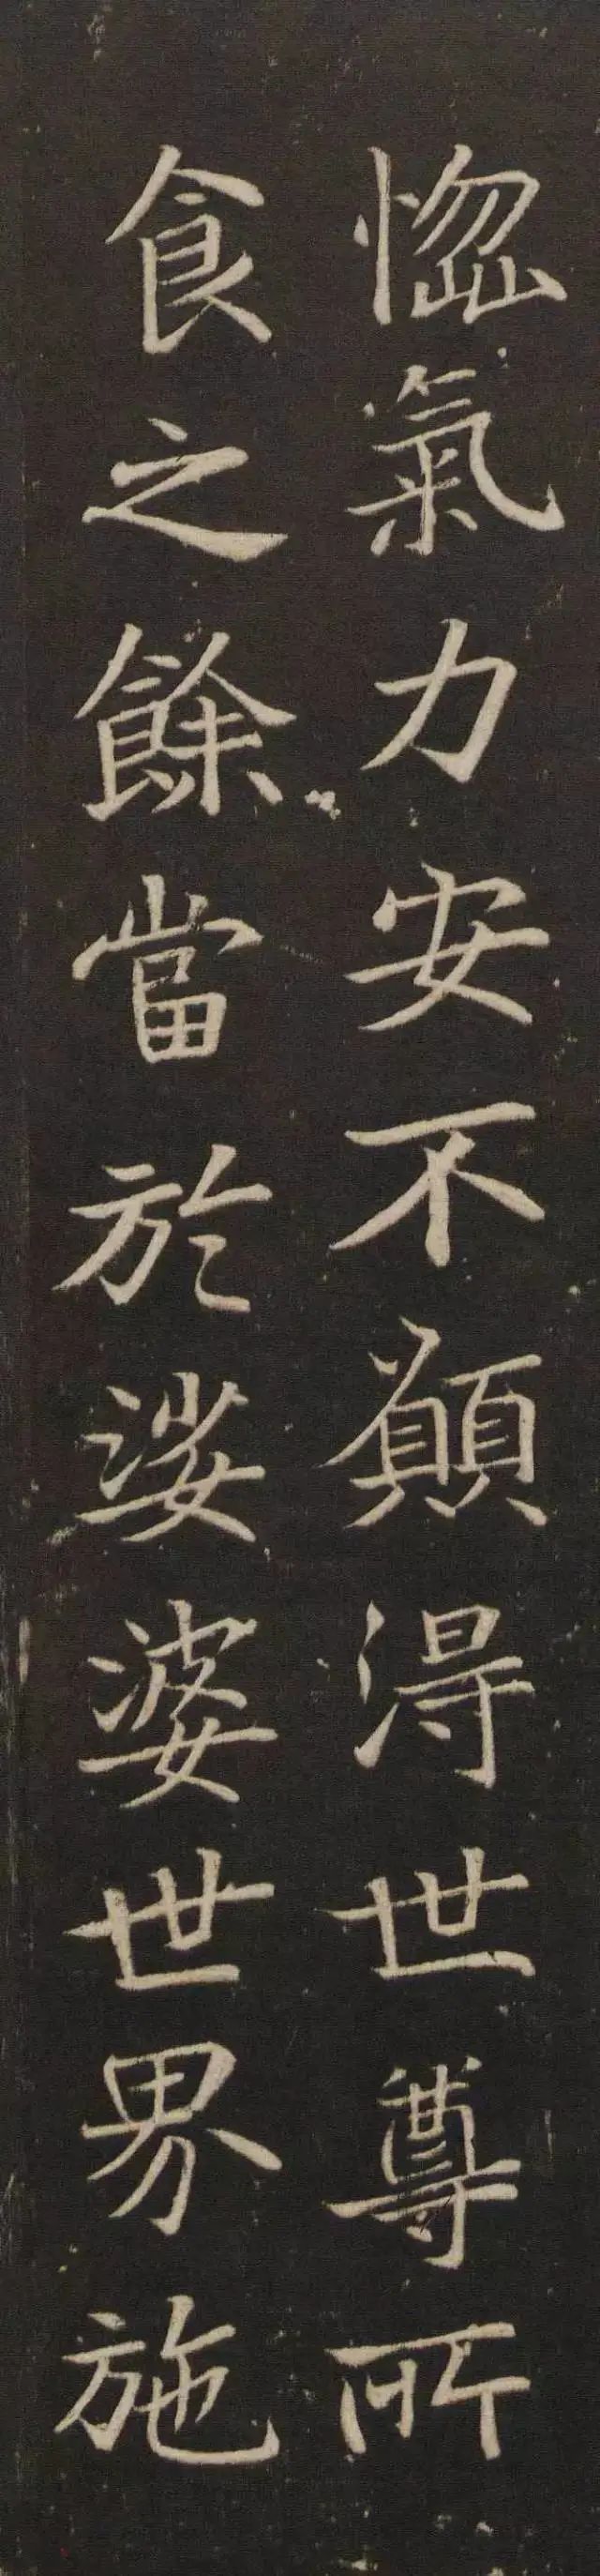 惚氣力安不願得世尊所
食之餘當於娑婆世界施